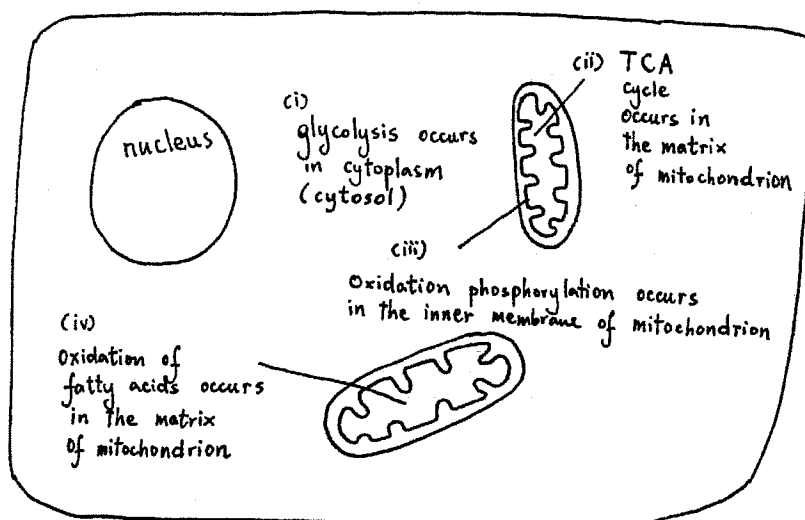 nucleus
(i)
glycolysis occurs
in cytoplasm
(cytosol)
(ii) TCA
cycle
occurs in
the matrix
of mitochondrion
(iii)
Oxidation phosphorylation occurs
in the inner membrane of mitochondrion
(iv)
Oxidation of
fatty acids occurs
in the matrix
of mitochondrion